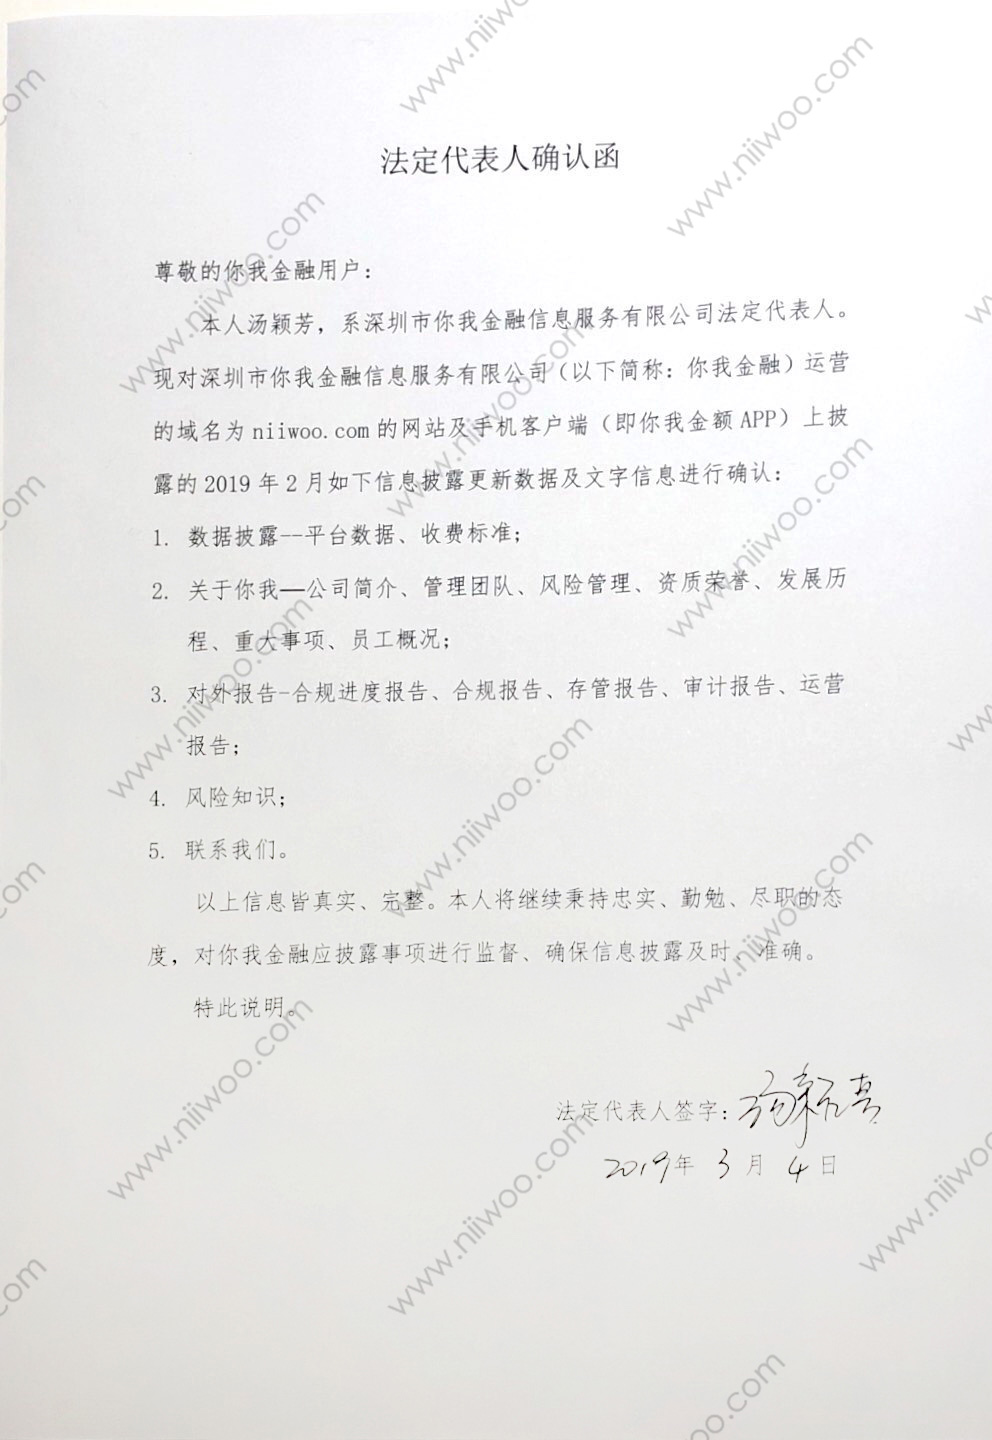 法定代表人确认函
尊敬的你我金融用户：
本人汤颖芳，系深圳市你我金融信息服务有限公司法定代表人。
现对深圳市你我金融信息服务有限公司（以下简称：你我金融）运营
的域名为 niiwoo.com 的网站及手机客户端（即你我金额 APP）上披
露的 2019 年 2 月如下信息披露更新数据及文字信息进行确认：
1. 数据披露--平台数据、收费标准；
2. 关于你我—公司简介、管理团队、风险管理、资质荣誉、发展历
程、重大事项、员工概况；
3. 对外报告-合规进度报告、合规报告、存管报告、审计报告、运营
报告；
4. 风险知识；
5. 联系我们。
以上信息皆真实、完整。本人将继续秉持忠实、勤勉、尽职的态
度，对你我金融应披露事项进行监督、确保信息披露及时、准确。
特此说明。
法定代表人签字：
2019年 3 月 4 日
www.niiwoo.com